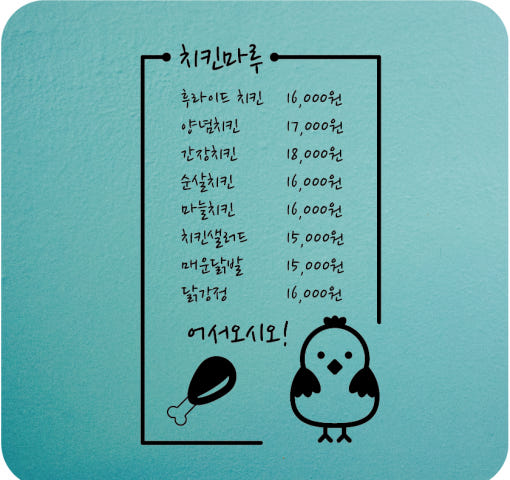 치킨마루
후라이드 치킨 16,000원
양념치킨 17,000원
간장치킨 18,000원
순살치킨 16,000원
마늘치킨 16,000원
치킨샐러드 15,000원
매운닭발 15,000원
닭강정 16,000원
어서오시오!